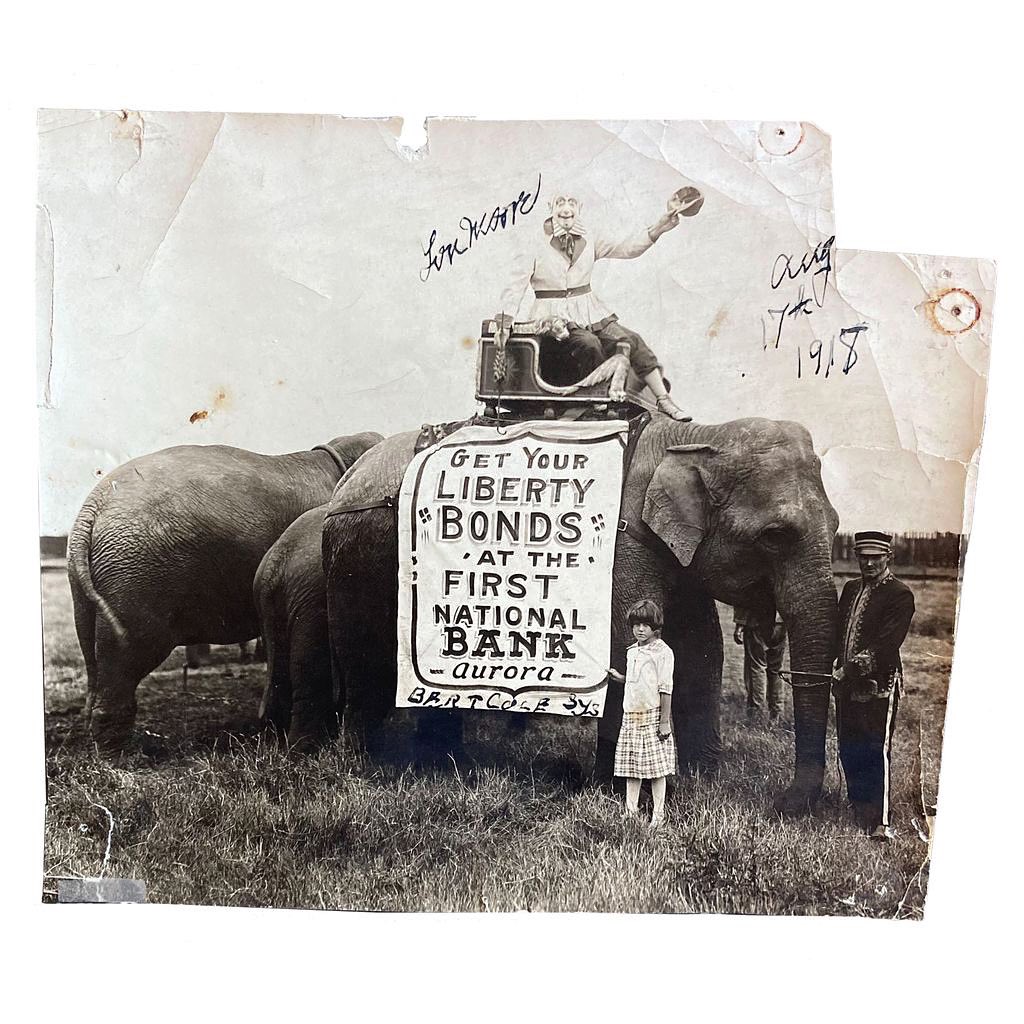 Lou Moore
Aug
17th
1918
GET YOUR
LIBERTY
"BONDS"
AT THE
FIRST
NATIONAL
BANK
— aurora —
BERT COLE Sys